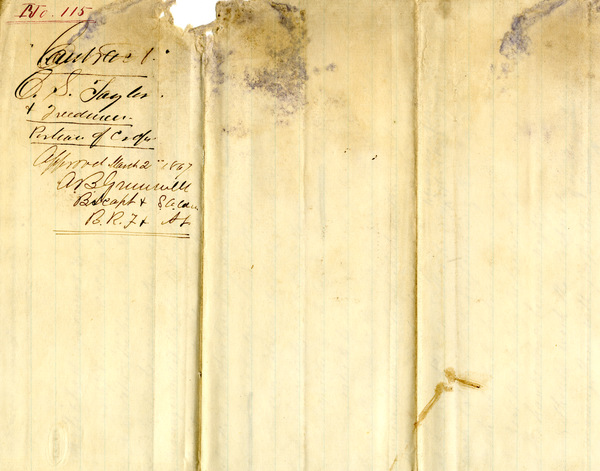 No. 115
"Contract"
O. S. Taylor
& Freedmen
Portion of Crop
Approved March 2" 1867
A. B. Grunwell
Bt Capt & S. A. Com
B. R. F & AL